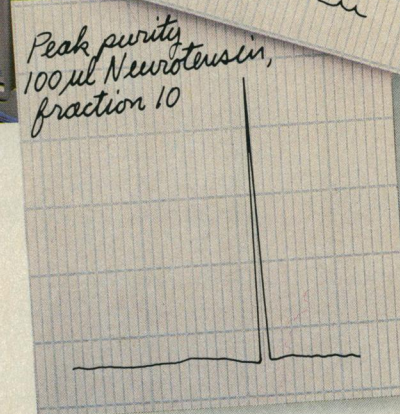 Peak purity
100 µl Neurotensin,
fraction 10